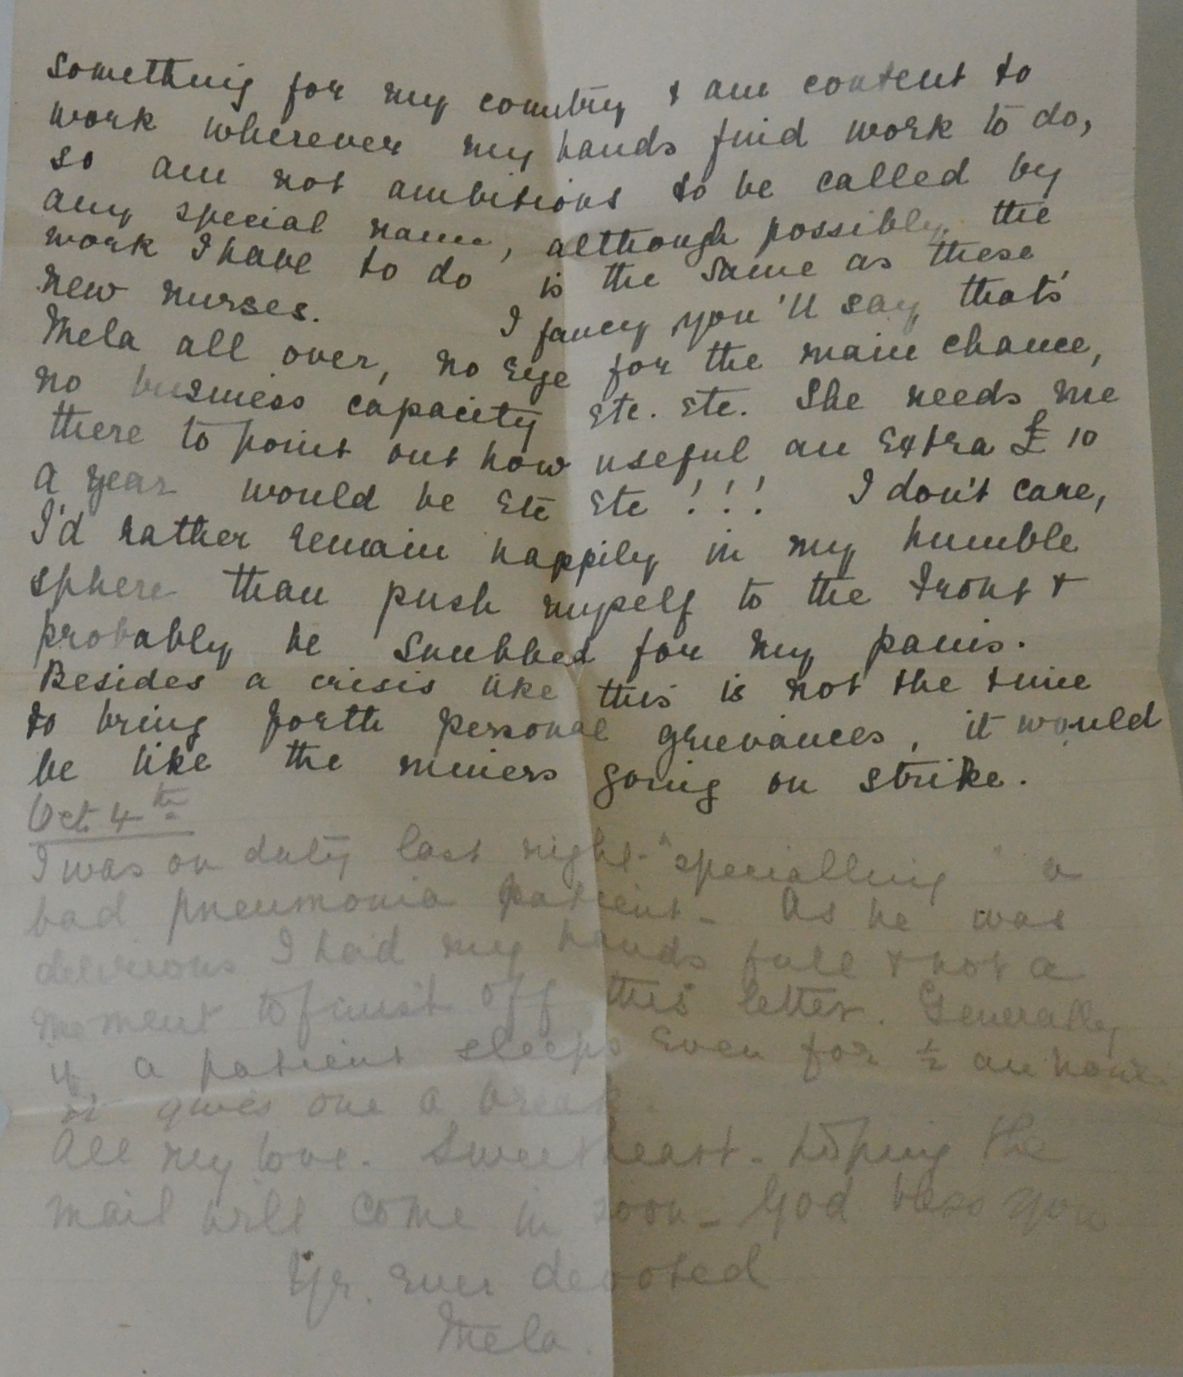 something for my country & am content to
work wherever my hands find work to do,
so am not ambitious to be called by
any special name, although possibly the
work I have to do is the same as these
new nurses. I fancy you'll say that's
Mela all over, no eye for the main chance,
no business capacity etc. etc. She needs me
there to point out how useful an extra £10
a year would be etc etc!!! I don't care,
I'd rather remain happily in my humble
sphere than push myself to the front &
probably be snubbed for my pains.
Besides a crisis like this is not the time
to bring forth personal grievances, it would
be like the miners going on strike.
Oct 4th
I was on duty last night - "specialling" a
bad pneumonia patient - As he was
delirious I had my hands full & not a
moment to finish off this letter. Generally
if a patient sleeps even for ½ an hour
it gives one a break.
All my love. Sweetheart - hoping the
mail will come in soon - God bless you
Yr. ever devoted
Mela.